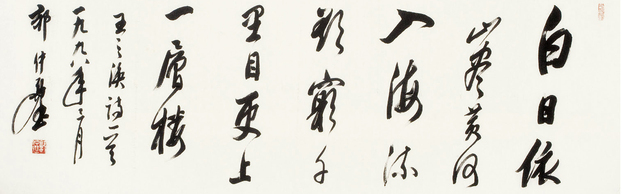 白日依
山尽黄河
入海流
欲穷千
里目更上
一层楼
王之涣诗一首
一九九八年二月
郭仲